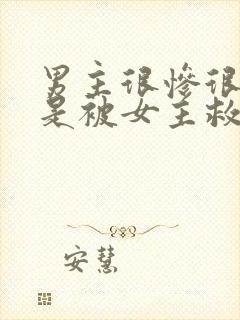 男主很慘很
是被女主救
安慧